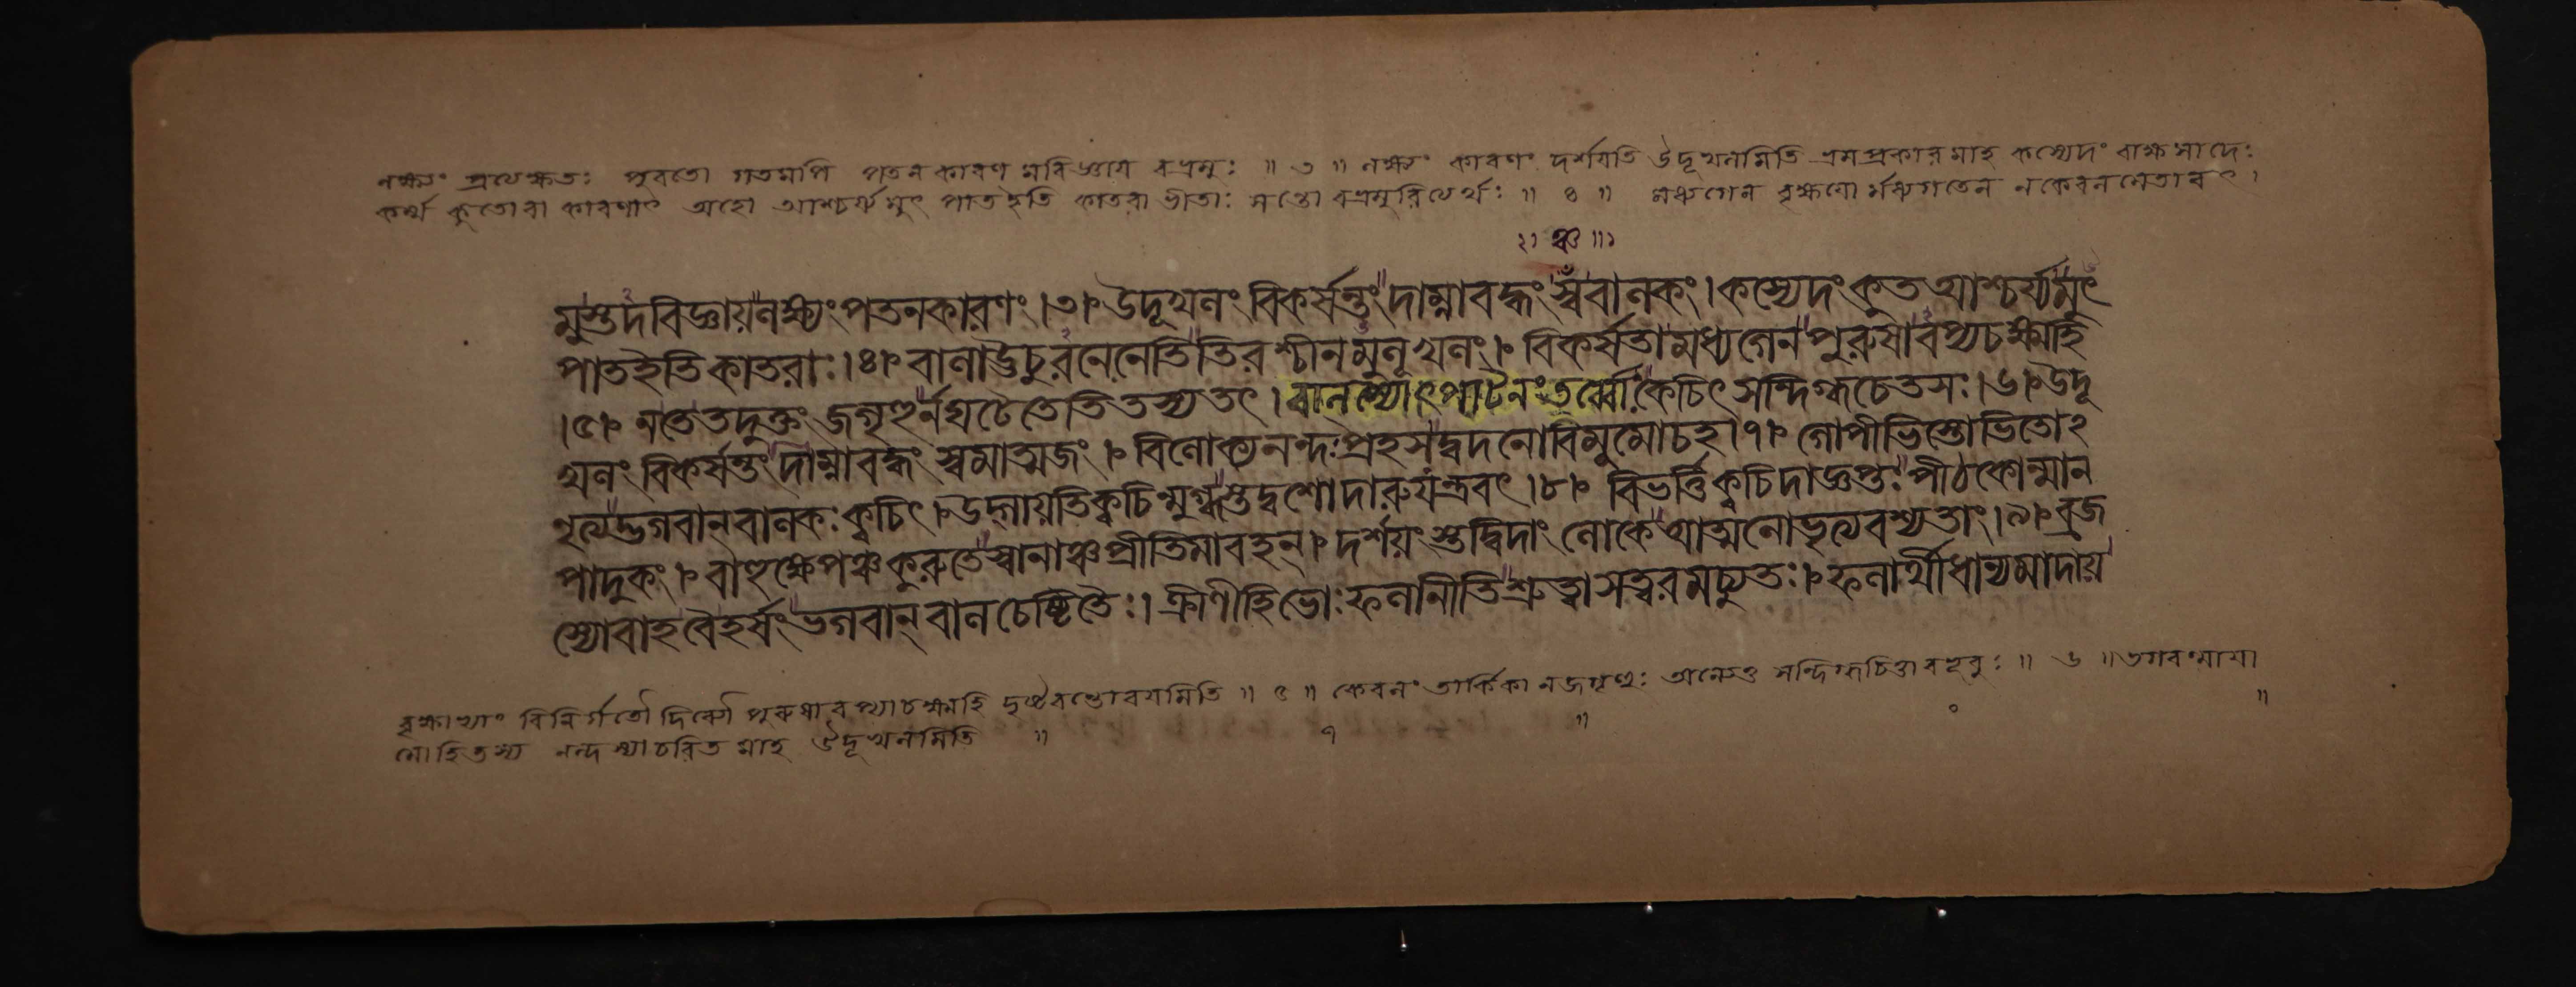 লক্ষ্যং প্রত্যেক্ষতঃ পুরতো গতমপি পতন কারণ মবিজ্ঞায় বভ্রমুঃ ॥ ৩ ॥ লক্ষ্যং কারণং দর্শয়তি উদূখলমিতি ভ্রমপ্রকার মাহ কস্যেদং রাক্ষসাদেঃ
কর্ম্ম কুতোবা কারণাৎ অহো আশ্চর্য্যমুৎ পাতইতি কাতরা ভীতাঃ সন্তো বভ্রমুরিত্যর্থঃ ॥ ৪ ॥ মধ্যগেন বৃক্ষযো র্মধ্যগতেন নকেবলমেতাবৎ ।
২। ঞ্চ ॥১
মুস্তদবিজ্ঞায়লক্ষ্যংপতনকারণং ।৩। উদূখলং বিকর্ষন্তং দাম্নাবদ্ধং স্বঁবালকং । কস্যেদংকুতআশ্চর্য্যমুৎ
পাতইতিকাতরাঃ ।৪। বালাঊচুরনেনেতিতিরশ্চীনমুলূখলং । বিকর্ষতামধ্যগেনপুরুষাবপ্যচক্ষ্মহি
।৫। নতেতদুক্তং জগৃহুর্নঘটেতেতিতস্যতৎ । বালস্যোৎপাটনংতর্ব্বোঃকেচিৎ সন্দিগ্ধচেতসঃ ।৬। উদূ
খলং বিকর্ষন্তংদাম্নাবদ্ধং স্বমাত্মজং । বিলোক্যনন্দঃপ্রহসদ্বদনোবিমুমোচহ ।৭। গোপীভিস্তোভিতোঽ
নৃত্যদ্ভগবান্বালকঃক্বচিৎ । উদ্গায়তিক্বচিন্মুগ্ধস্তদ্বশোদারুযন্ত্রবৎ ।৮। বিভর্ত্তিক্বচিদাজ্ঞপ্তঃপীঠকোন্মান
পাদুকং । বাহুক্ষেপঞ্চকুরুতেস্বানাঞ্চপ্রীতিমাবহন্ । দর্শয়ংস্তদ্বিদাং লোকেআত্মনোভৃত্যবশ্যতাং ।৯। ব্রজ
স্যোবাহবৈহর্ষংভগবান্ বালচেষ্টিতৈঃ । ক্রীণীহিভোঃফলানীতিশ্রুত্বাসত্বরমচ্যুতঃ । ফলার্থীধান্যমাদায়
বৃক্ষাভ্যাং বিনির্গতৌ দিব্যৌ পুরুষাবপ্যাচক্ষ্মহি দৃষ্টবন্তোবযমিতি ॥ ৫ ॥ কেবলং তার্কিকা নজগৃহুঃ অন্যেতু সন্দিগ্ধচিত্তাবভূবুঃ ॥ ৬ ॥ ভগবন্মায়া
মোহিতস্য নন্দস্যাচরিত মাহ উদূখলমিতি ॥ ৭ ॥